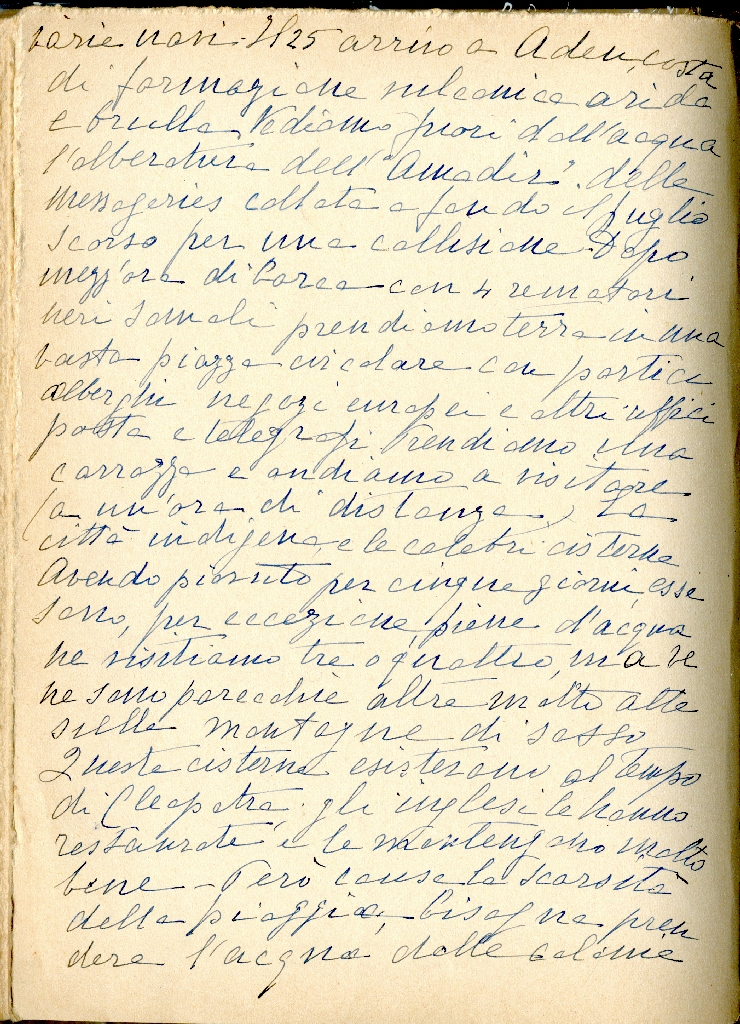 varie navi. Il 25 arrivo a Aden, costa
di formazione vulcanica arida
e brulla. Vediamo fuori dall'acqua
l'alberatura dell' "Amadir" delle
messageries collata a fondo il luglio
scorso per una collisione. Dopo
mezz'ora di barca con 4 rematori
neri somali prendiamo terra in una
vasta piazza circolare con portici
alberghi negozi europei e altri uffici
posta e telegrafi. Prendiamo una
carrozza e andiamo a visitare
(a un'ora di distanza) la
città indigena, e le celebri cisterne
Avendo piovuto per cinque giorni, esse
sono, per eccezione, piene d'acqua
ne visitiamo tre o quattro, ma ve
ne sono parecchie altre molto alte
sulle montagne di sasso.
Queste cisterne esistevano al tempo
di Cleopatra; gli inglesi le hanno
restaurate e le mantengono molto
bene - Però causa la scarsità
della pioggia, bisogna pren
dere l'acqua dalle colonie